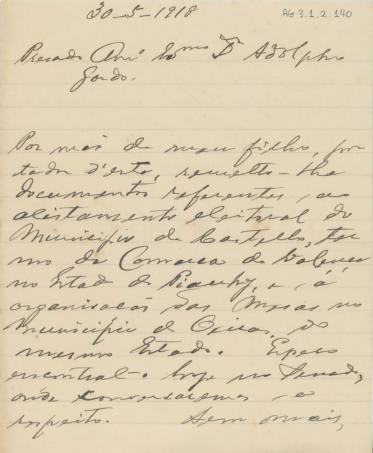 30-5-1918
AG 3.1.2.140
Presado Amº Exmo Dr Adolpho
Gordo.
Por mãos de meu filho, por
tador d'esta, remetto-lhe
documentos referentes, ao
alistamento eleitoral do
Municipio de Castello, ter
mo da Comarca de Valença
no Estado do Piauhy, e á
organisacão das Mesas no
municipio de Oeiras, do
mesmo Estado. Espero
encontral-o hoje no Senado,
onde conversaremos a
respeito. Sem mais,